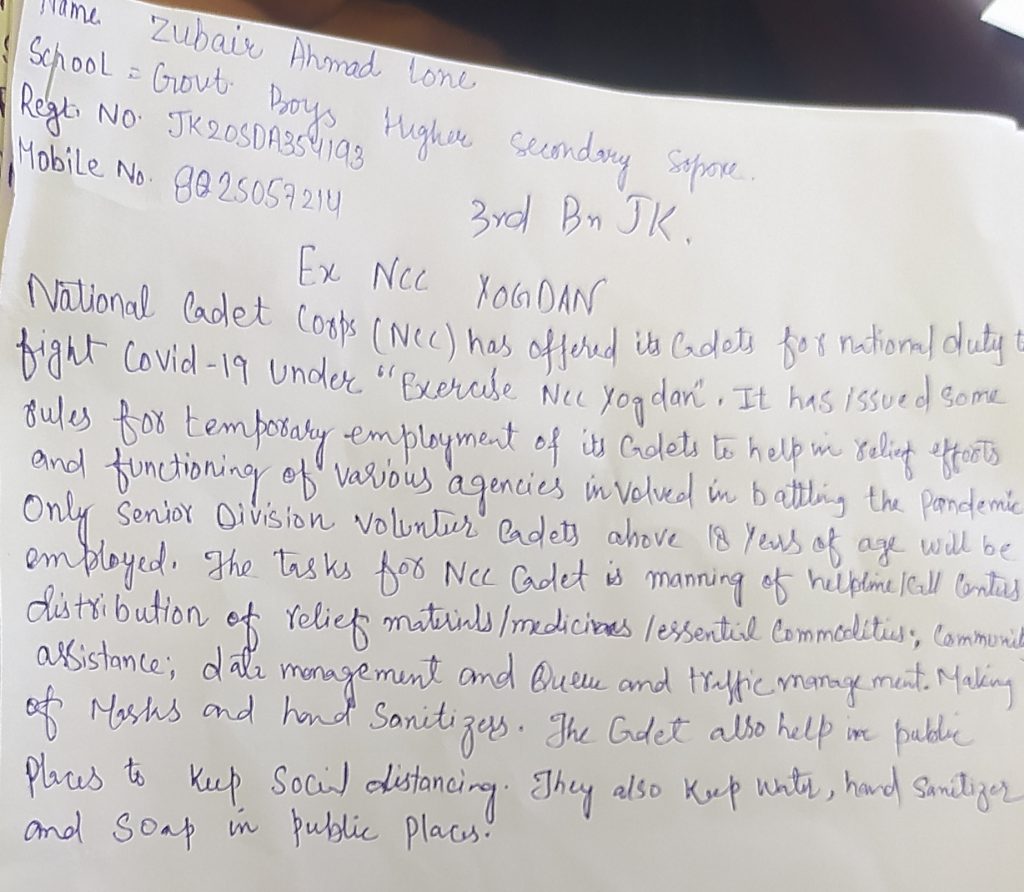 Name Zubair Ahmad lone
School = Govt. Boys Higher secondary Sopore.
Regt. No. JK20SDA354193
Mobile No. 9825057214
3rd Bn JK.
Ex NCC YOGDAN
National Cadet Corps (NCC) has offered its Cadets for national duty t
fight Covid-19 under "Exercise NCC Yogdan". It has issued some
rules for temporary employment of its Cadets to help in relief efforts
and functioning of various agencies involved in battling the Pandemic
Only Senior Division voluntur Cadets above 18 Years of age will be
employed. The tasks for NCC Cadet is manning of helpline/Call Centers
distribution of relief materials/medicines/essentil Commodities; Communit
assistance; data management and Queue and traffic management. Making
of Masks and hand Sanitizers. The Cadet also help in public
Places to Keep Social distancing. They also Keep water, hand Sanitizer
and Soap in public places.